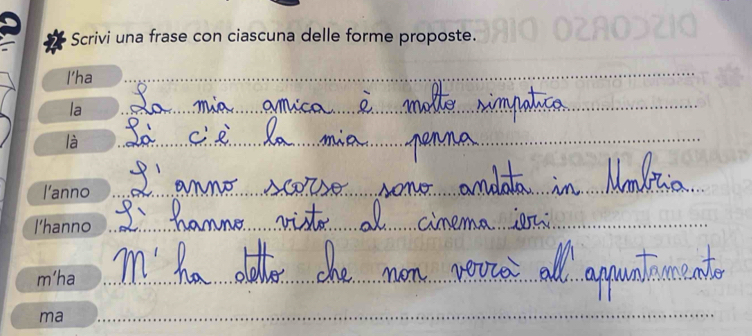 2 Scrivi una frase con ciascuna delle forme proposte.
l'ha
la La mia amica è molto simpatica
là Là c'è la mia penna
l'anno L'anno scorso sono andata in Umbria
l'hanno Lì hanno visto al cinema ieri
m'ha M'ha detto che non verrà all'appuntamento
ma